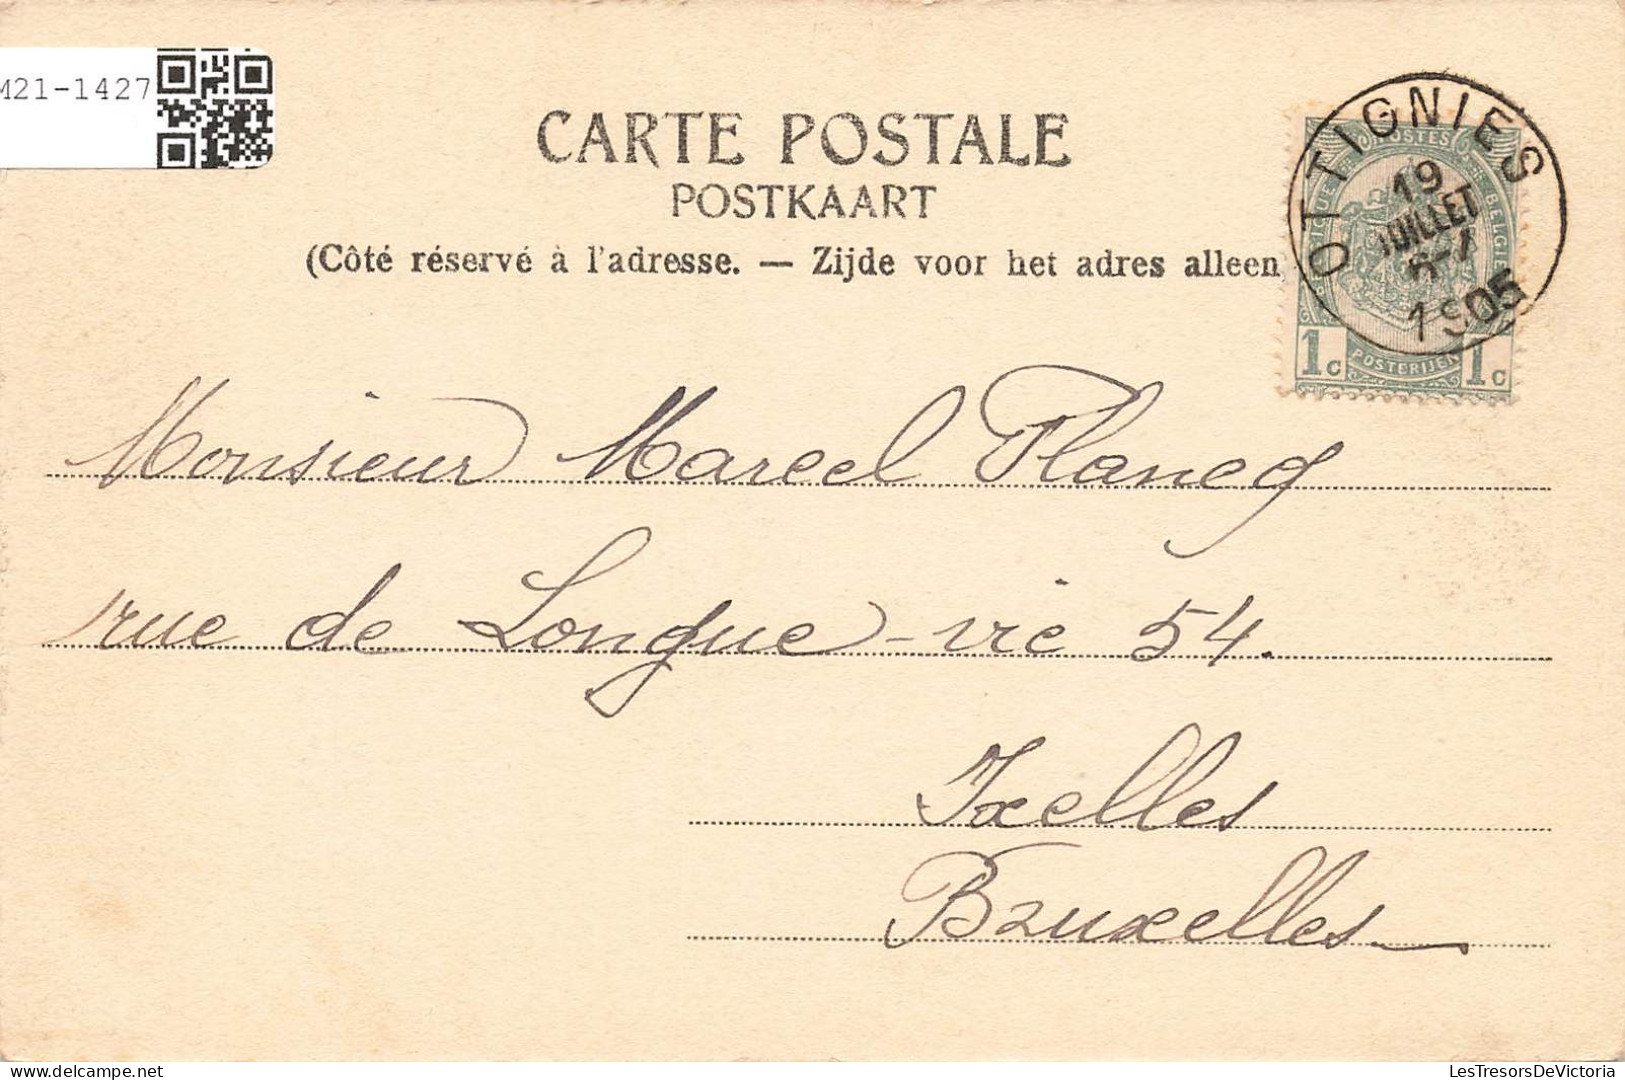 M21-1427
CARTE POSTALE
POSTKAART
(Côté réservé à l'adresse. — Zijde voor het adres alleen
OTTIGNIES
19
JUILLET
6-7
1905
POSTES
BELGIQUE BELGIE
1c POSTERIJEN 1c
Monsieur Marcel Plancq
rue de Longue-vie 54.
Ixelles
Bruxelles
LesTresorsDeVictoria
delcampe.net